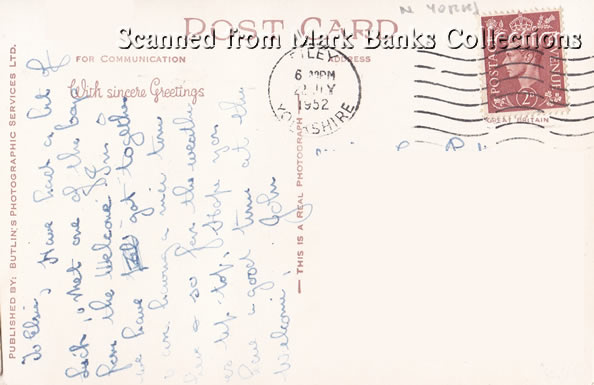 N YORKS
POST CARD
Scanned from Mark Banks Collections
FOR COMMUNICATION
ADDRESS
With sincere Greetings
FILEY
6 PM
JLY
1952
YORKSHIRE
POSTAGE
REVENUE
2D
GREAT BRITAIN
PUBLISHED BY: BUTLIN'S PHOTOGRAPHIC SERVICES LTD.
— THIS IS A REAL PHOTOGRAPH —
To Elsie, Have had a bit of
luck, met one of the boys
from the Welcome Inn &
we have got together
am having a nice time
here & so far the weather
is tip-top. Hope you
have a good time at the
Welcome, John